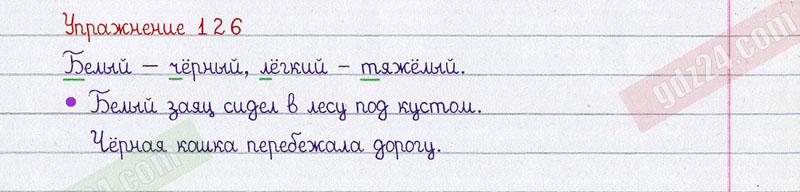 Упражнение 126
Белый – чёрный, лёгкий – тяжёлый.
• Белый заяц сидел в лесу под кустом.
Чёрная кошка перебежала дорогу.
gdz24.com
gdz24.com